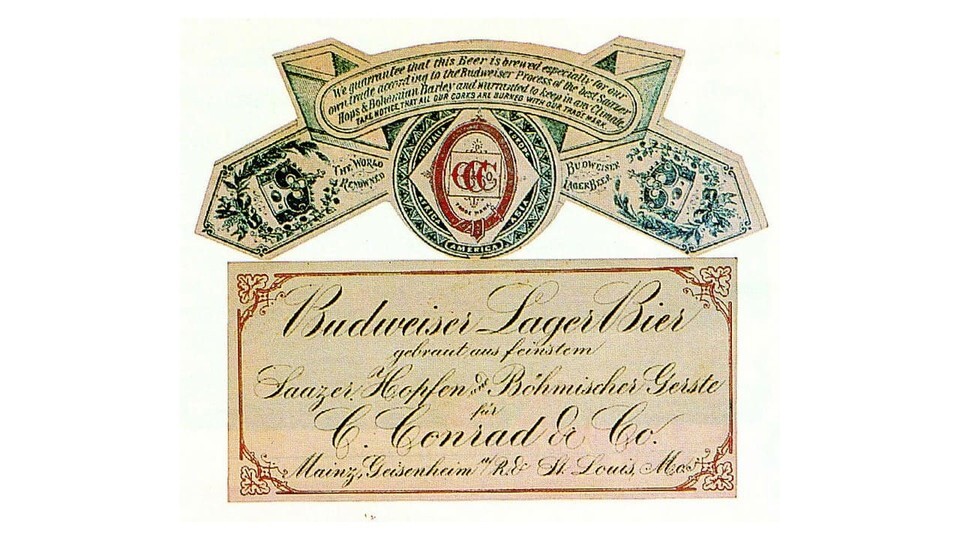 We guarrantee that this Beer is brewed especially for our
own trade according to the Budweiser Process of the best Saazer
Hops & Bohemian Barley and warranted to keep in any Climate.
TAKE NOTICE, THAT ALL OUR CORKS ARE BURNED WITH OUR TRADE MARK.
THE WORLD
RENOWNED
AUSTRALIA
EUROPE
CCC & Co.
TRADE MARK
AFRICA
ASIA
AMERICA
BUDWEISER
LAGER BEER
Budweiser Lager Bier
gebraut aus feinstem
Saazer Hopfen & Böhmischer Gerste
für
C. Conrad & Co.
Mainz, Geisenheim a/R. & St. Louis, Mo.